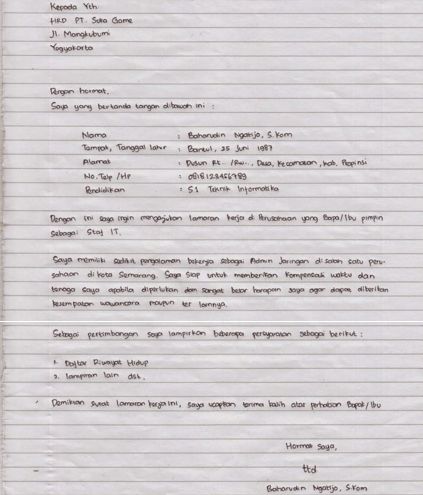 Kepada Yth.
HRD PT. Suka Game
Jl. Mangkubumi
Yogyakarta
Dengan hormat,
Saya yang bertanda tangan dibawah ini :
Nama : Baharudin Ngatijo, S.Kom
Tempat, Tanggal lahir : Bantul, 25 Juni 1987
Alamat : Dusun Rt.. /Rw.., Desa, Kecamatan, Kab, Propinsi
No. Telp /HP : 0818123456789
Pendidikan : S1 Teknik Informatika
Dengan ini saya ingin mengajukan lamaran kerja di Perusahaan yang Bapa/Ibu pimpin
Sebagai Staf IT.
Saya memiliki sedikit pengalaman bekerja sebagai Admin Jaringan di salah satu peru-
sahaan di kota Semarang. Saya Siap untuk memberikan kompensasi waktu dan
tenaga saya apabila diperlukan dan sangat besar harapan saya agar dapat diberikan
kesempatan wawancara maupun tes lainnya.
Sebagai pertimbangan saya lampirkan beberapa persyaratan sebagai berikut :
1. Daftar Riwayat Hidup
2. lampiran lain dst.
Demikian surat lamaran kerja ini, saya ucapkan terima kasih atas perhatian Bapak/Ibu
Hormat Saya,
ttd
Baharudin Ngatijo, S.Kom